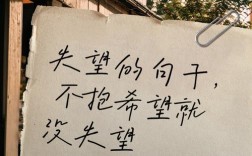 失望的句子，
不抱希望就
没失望